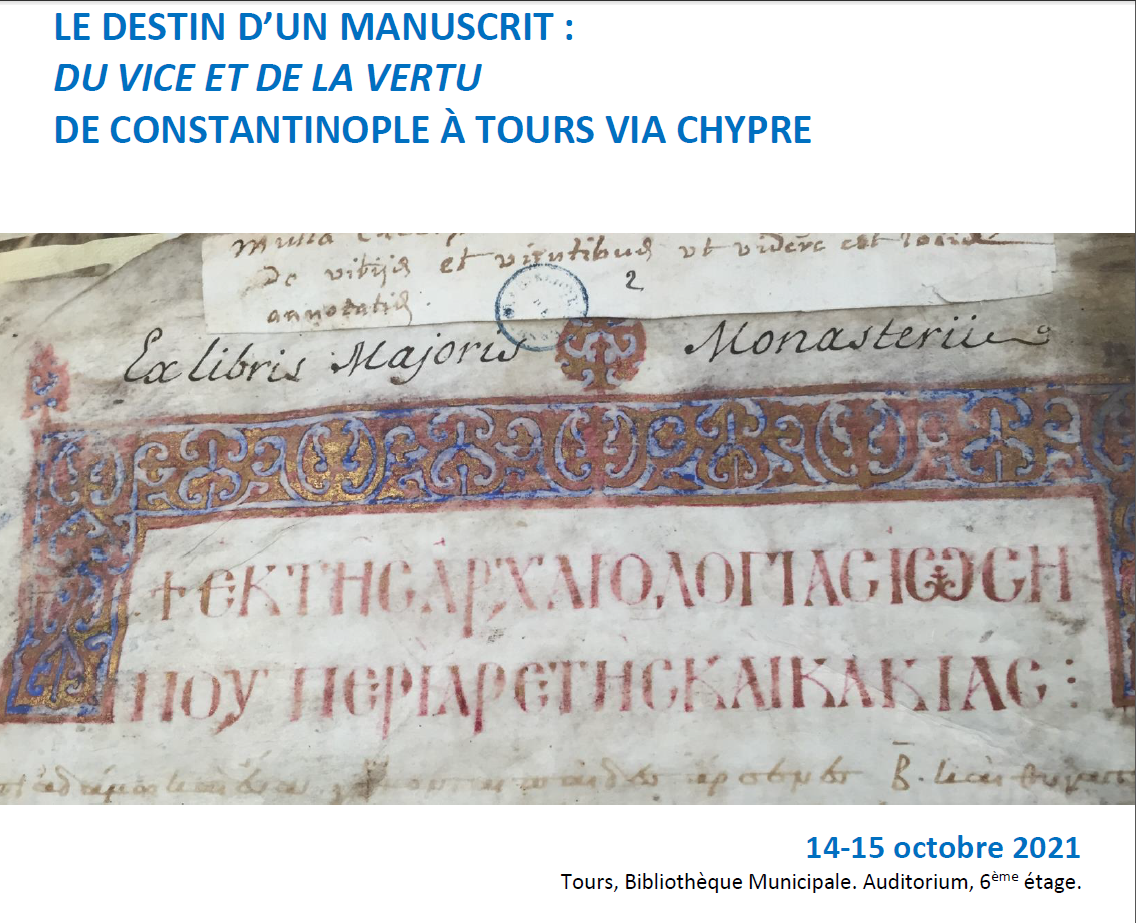 LE DESTIN D’UN MANUSCRIT :
DU VICE ET DE LA VERTU
DE CONSTANTINOPLE À TOURS VIA CHYPRE
multa
De vitijs et virtutibus ut videre est
annotatis.
2
Ex libris Majoris Monasterii
+ ЄΚ ΤΗϹ ἈΡΧΑΙΟΛΟΓΊΑϹ ἸΩϹΗ
ΠΟΥ ΠЄΡῚ ἈΡЄΤΗ͂Ϲ ΚΑῚ ΚΑΚΊΑϹ :
14-15 octobre 2021
Tours, Bibliothèque Municipale. Auditorium, 6ème étage.